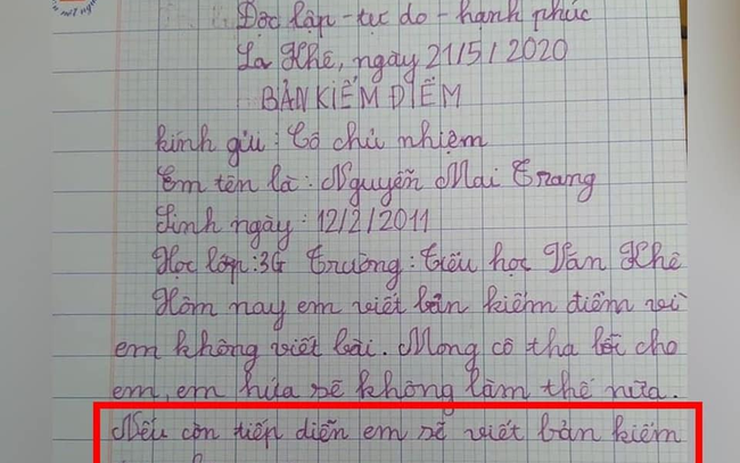 Độc lập - tục do - hạnh phúc
La Khê, ngày 21/5/2020
BẢN KIỂM ĐIỂM
kính gửi: Cô chủ nhiệm
Em tên là: Nguyễn Mai Trang
Sinh ngày: 12/2/2011
Học lớp: 3G Trường: Tiểu học Văn Khê
Hôm nay em viết bản kiểm điểm vì
em không viết bài. Mong cô tha lỗi cho
em, em hứa sẽ không làm thế nữa.
Nếu còn tiếp diễn em sẽ viết bản kiểm